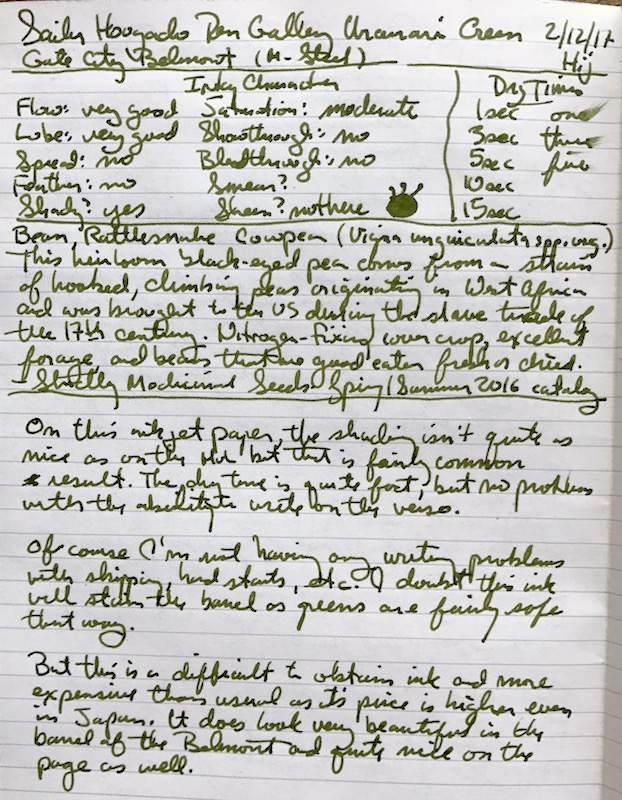 Sailor Hougado Pen Gallery Uramari Green 2/12/17
Gate City Belmont (M-Steel) Hij
Inky Character Dry Times
Flow: very good Saturation: moderate 1sec one
Lube: very good Showthrough: no 3sec three
Spread: no Bleedthrough: no 5sec five
Feather: no Smear? 10sec
Shady? yes Sheen? not here 15sec
Bean, Rattlesnake Cowpea (Vigna unguiculata spp. ung.)
This heirloom black-eyed pea comes from a strain
of hooked, climbing peas originating in West Africa
and was brought to the US during the slave trade of
the 17th century. Nitrogen-fixing cover crop, excellent
forage and beans that are good eaten fresh or dried.
- Strictly Medicinal Seeds Spring/Summer 2016 catalog
On this inkjet paper, the shading isn't quite as
nice as on the but that is fairly common
result. The dry time is quite fast, but no problems
with the ability to write on the verso.
Of course I'm not having any writing problems
with skipping, hard starts, etc. I doubt this ink
will stain the barrel as greens are fairly safe
that way.
But this is a difficult to obtain ink and more
expensive than usual as it's price is higher even
in Japan. It does look very beautiful in the
barrel of the Belmont and quite nice on the
page as well.